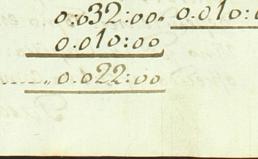 0:032:00. 0:010:0
0:010:00
0:022:00